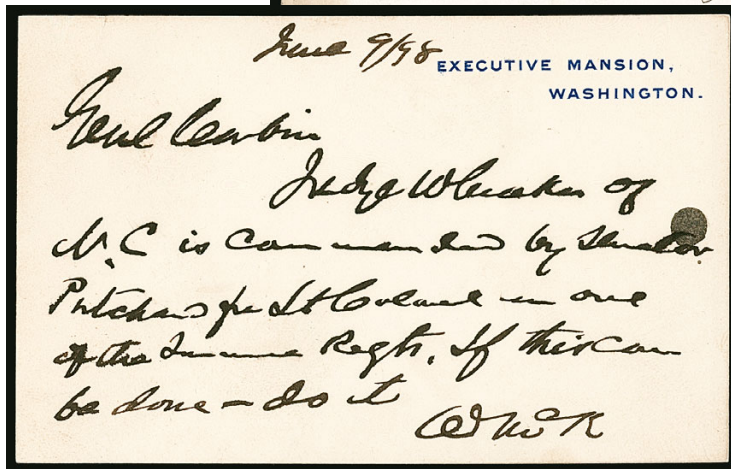 June 9/98
EXECUTIVE MANSION,
WASHINGTON.
Genl Corbin
Judge Wheaker of
N.C is commended by Senator
Pritchard for Lt Colonel in one
of the Immune Regts. If this can
be done - do it
W McK